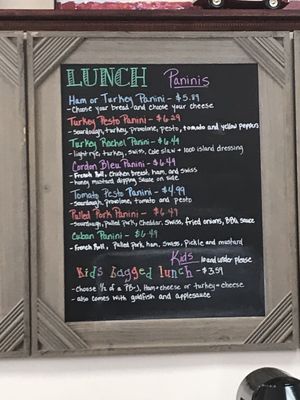 LUNCH Paninis
Ham or Turkey Panini - $5.89
- Choose your bread and choose your cheese
Turkey Pesto Panini - $6.29
- sourdough, turkey, provolone, pesto, tomato and yellow peppers
Turkey Rachel Panini - $6.49
- light rye, turkey, swiss, cole slaw + 1000 island dressing
Cordon Bleu Panini - $6.49
- French Roll, Chicken breast, ham, and swiss
- honey mustard dipping sauce on side
Tomato Pesto Panini - $4.99
- sourdough, provolone, tomato and pesto
Pulled Pork Panini - $6.49
- sourdough, pulled pork, cheddar, swiss, fried onions, BBQ sauce
Cuban Panini - $6.49
- French Roll, Pulled pork, ham, swiss, pickle and mustard
Kids 10 and under please
Kids Bagged lunch - $3.59
- Choose 1/2 of a PB+J, Ham + cheese or turkey + cheese
- also comes with goldfish and applesauce